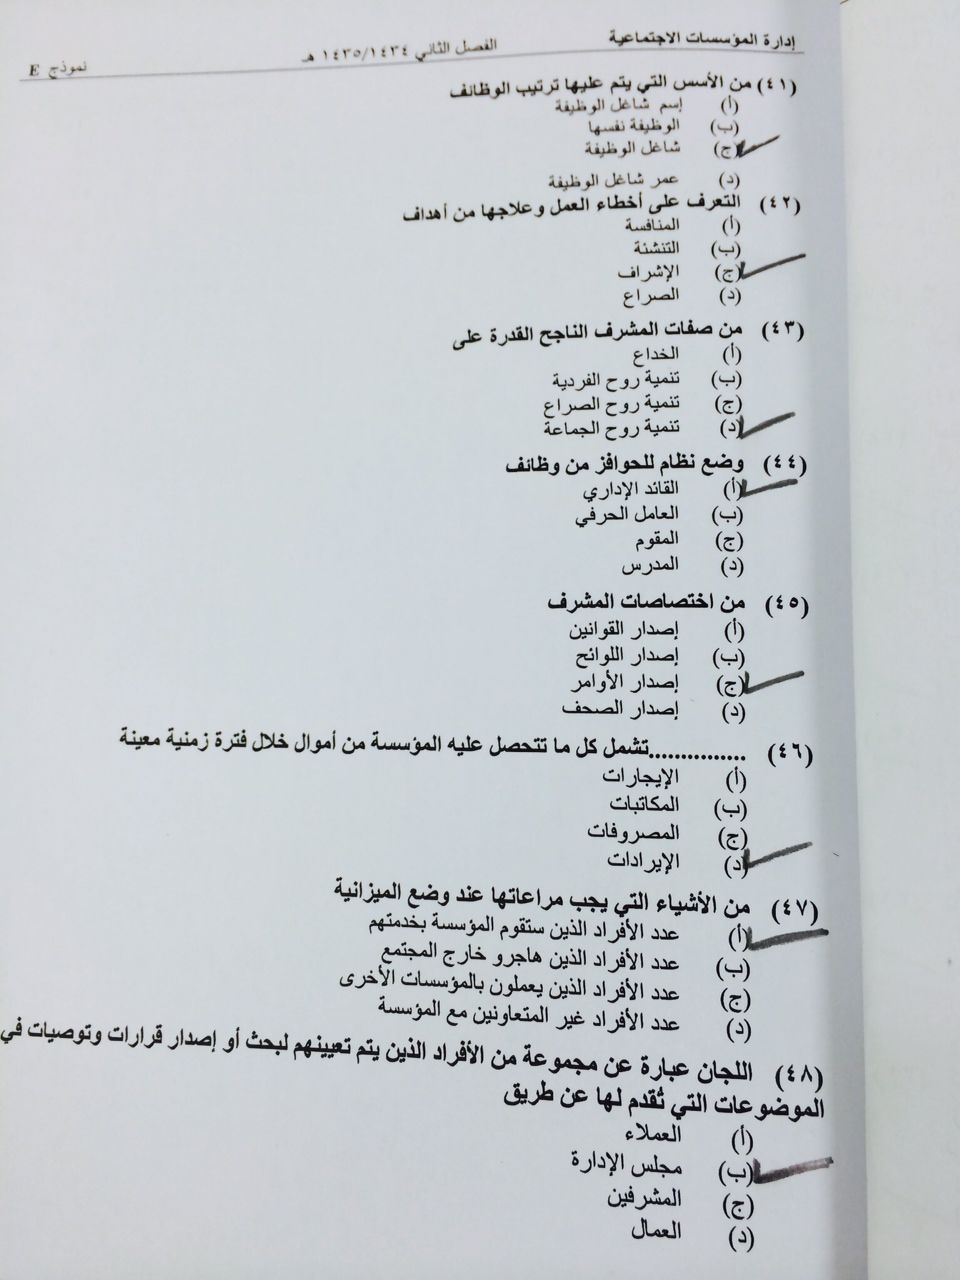 إدارة المؤسسات الاجتماعية الفصل الثاني ١٤٣٥/١٤٣٤ هـ نموذج E
(٤١) من الأسس التي يتم عليها ترتيب الوظائف
(أ) إسم شاغل الوظيفة
(ب) الوظيفة نفسها
(ج) شاغل الوظيفة
(د) عمر شاغل الوظيفة
(٤٢) التعرف على أخطاء العمل وعلاجها من أهداف
(أ) المنافسة
(ب) التنشئة
(ج) الإشراف
(د) الصراع
(٤٣) من صفات المشرف الناجح القدرة على
(أ) الخداع
(ب) تنمية روح الفردية
(ج) تنمية روح الصراع
(د) تنمية روح الجماعة
(٤٤) وضع نظام للحوافز من وظائف
(أ) القائد الإداري
(ب) العامل الحرفي
(ج) المقوم
(د) المدرس
(٤٥) من اختصاصات المشرف
(أ) إصدار القوانين
(ب) إصدار اللوائح
(ج) إصدار الأوامر
(د) إصدار الصحف
(٤٦) ...............تشمل كل ما تتحصل عليه المؤسسة من أموال خلال فترة زمنية معينة
(أ) الإيجارات
(ب) المكاتبات
(ج) المصروفات
(د) الإيرادات
(٤٧) من الأشياء التي يجب مراعاتها عند وضع الميزانية
(أ) عدد الأفراد الذين ستقوم المؤسسة بخدمتهم
(ب) عدد الأفراد الذين هاجرو خارج المجتمع
(ج) عدد الأفراد الذين يعملون بالمؤسسات الأخرى
(د) عدد الأفراد غير المتعاونين مع المؤسسة
(٤٨) اللجان عبارة عن مجموعة من الأفراد الذين يتم تعيينهم لبحث أو إصدار قرارات وتوصيات في
الموضوعات التي تُقدم لها عن طريق
(أ) العملاء
(ب) مجلس الإدارة
(ج) المشرفين
(د) العمال